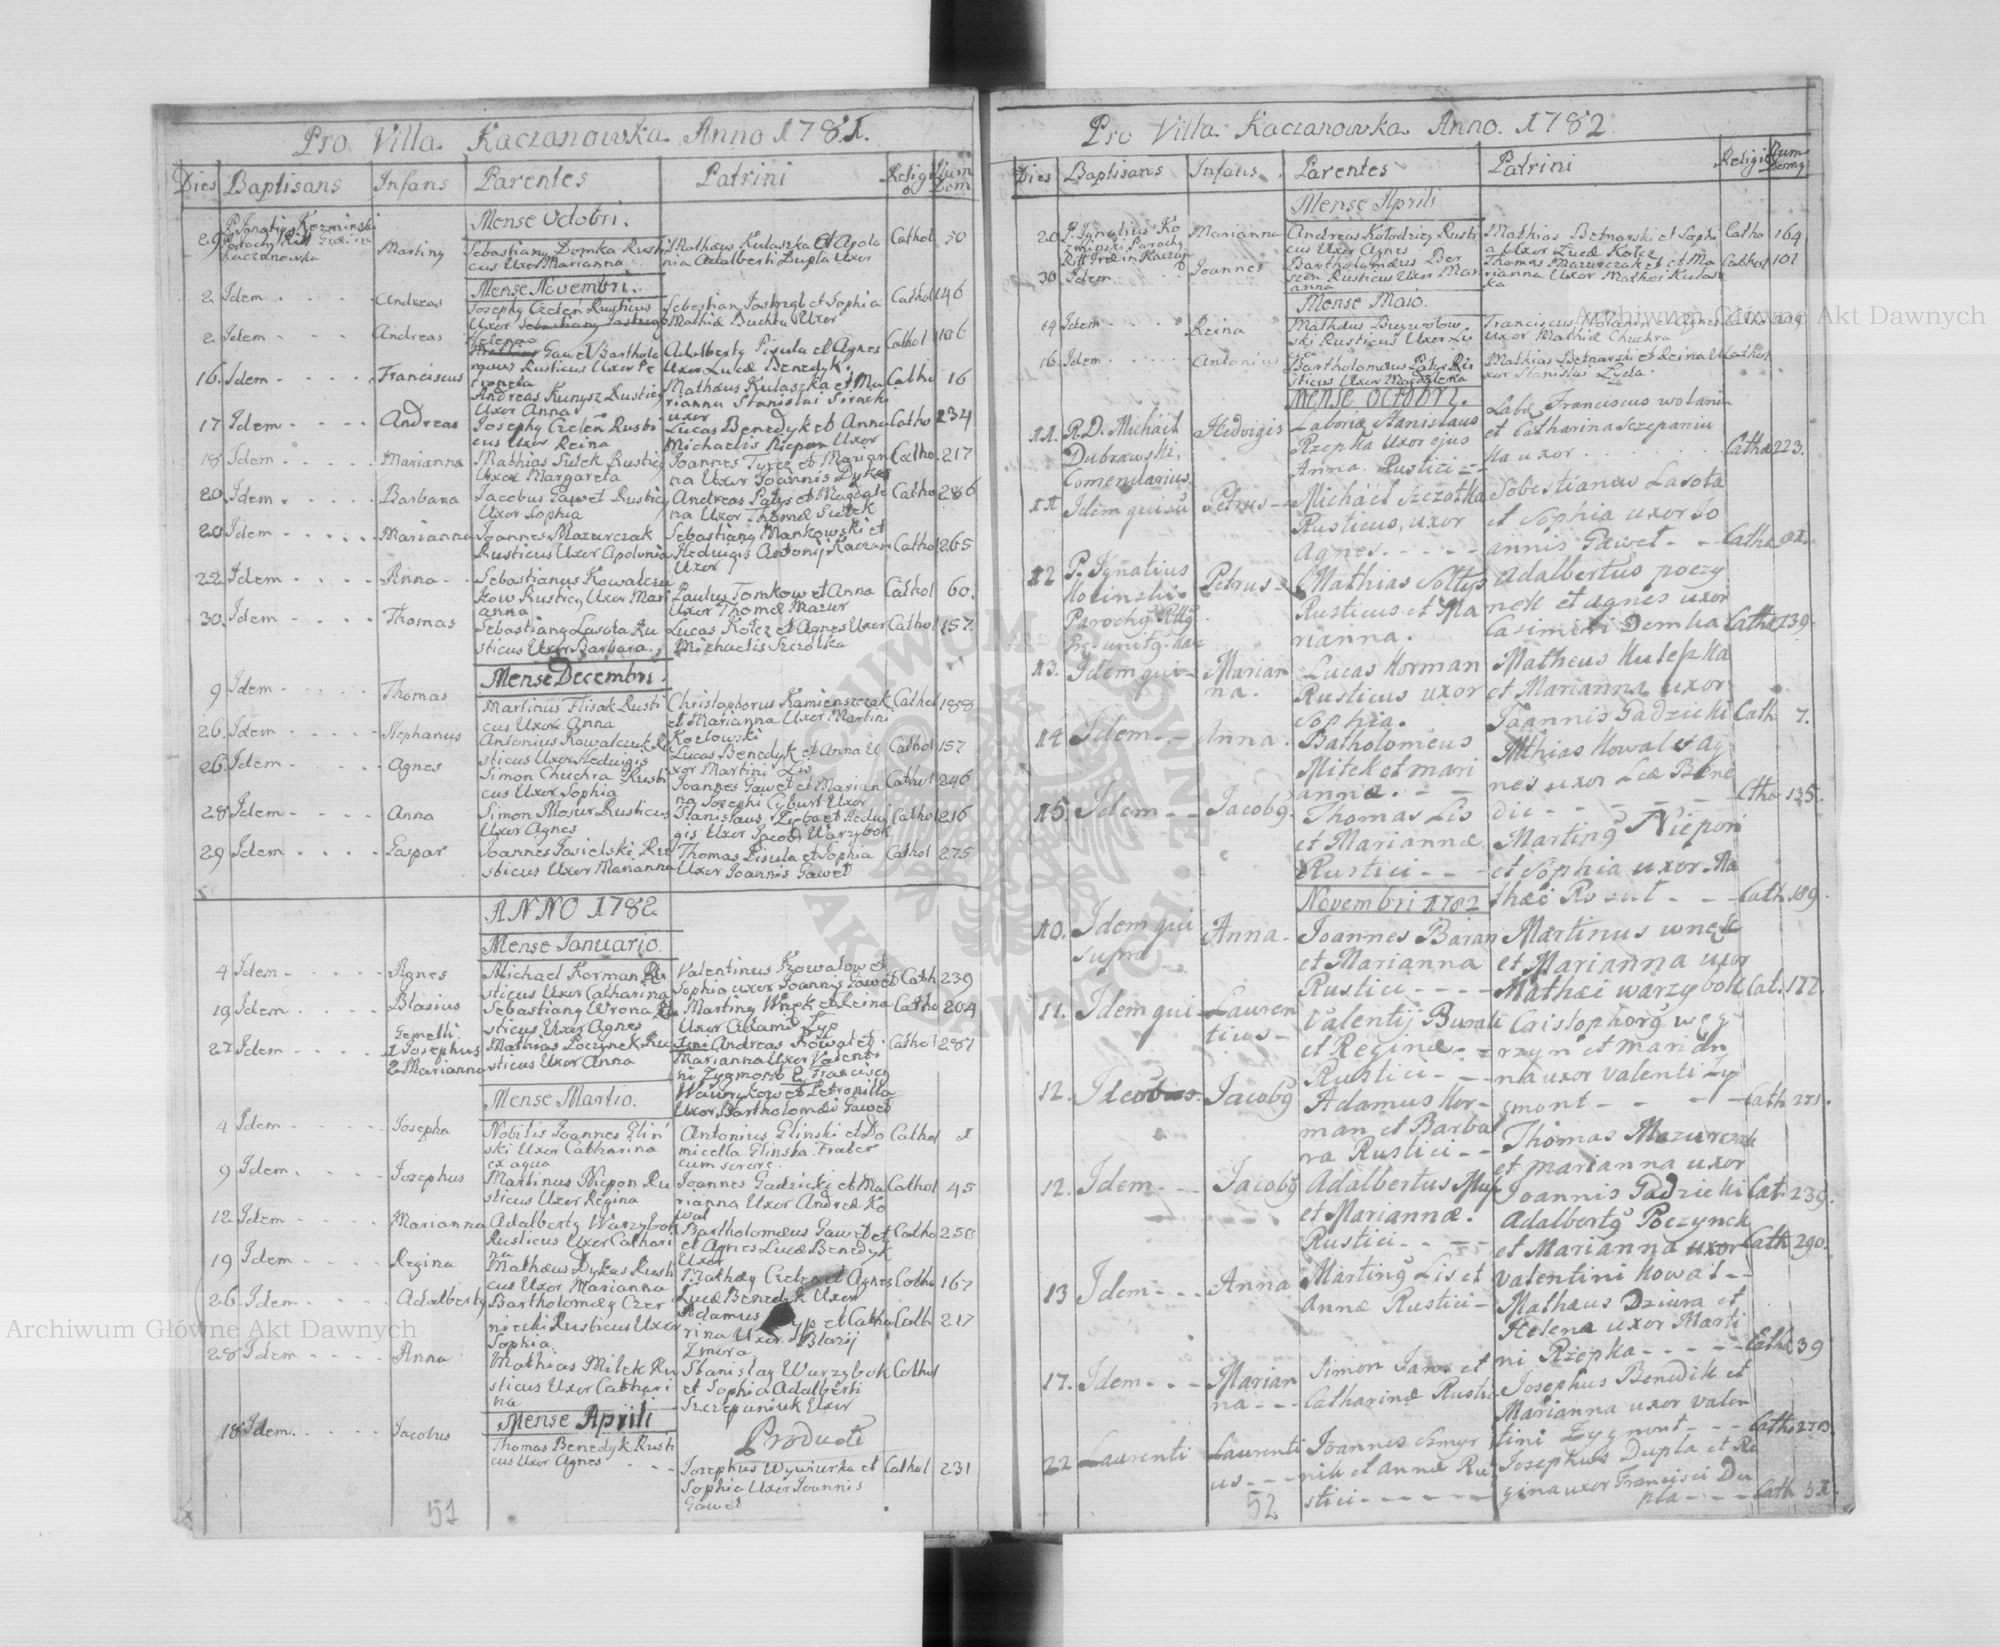 Pro Villa Kaczanowka Anno 1781.
Dies Baptisans Infans Parentes Patrini Religio Num Dom
Mense Octobri.
29 P. Ignatius Kozminski
Kaczanowka
Martinus
Sebastianus Domka Rusti
cus Uxor Marianna
Mathæus Kulaszka et Apolo
nia Adalberti Dupla Uxor
Cathol 50
Mense Novembri.
2 Idem Andreas Josephus Cizleń Rusticus
Uxor
Helena
Sebestian Jastrzęb et Sophia
Mathiæ Duchta Uxor
Cathol 146
2 Idem Andreas Gaweł Bartholo
mæus Rusticus Uxor Pe
tronela
Adalbertus Pisula et Agnes
Uxor Lucæ Benedyk.
Cathol 106
16. Idem Franciscus
Andreas Kunysz Rusticus
Uxor Anna
Mathæus Kulaszka et Ma
rianna Stanislai Siracki
uxor
Catho 16
17 Idem Andreas Josephus Cizleń Rusti
cus Uxor Reina
Lucas Benedyk et Anna
Michaelis Niepon Uxor
Catho 234
18 Idem Marianna Mathias Sułek Rusticus
Uxor Margareta
Joannes Tyrcz et Marian
na Uxor Joannis Dykas
Catho. 217
20. Idem Barbara Jacobus Gaweł Rusticus
Uxor Sophia
Andreas Patys et Magdale
na Uxor Thomæ Sułek
Catho 286
20 Idem Marianna Joannes Mazurczak
Rusticus Uxor Apolonia
Sebastianus Mankowski et
Hedwigis Antonij Kaczan
Uxor
Cathol 265
22 Idem Anna Sebastianus Kowalcza
kow Rusticus Uxor Mari
anna
Paulus Tomkow et Anna
Uxor Thomæ Mazur
Cathol 60.
30. Idem Thomas Sebastianus Lasota Ru
sticus Uxor Barbara.
Lucas Kołcz et Agnes Uxor
Michaelis Szczotka
Cathol 157.
Mense Decembri.
9 Idem Thomas Martinus Flisak Rusti
cus Uxor Anna
Christophorus Kamienszczak
et Marianna Uxor Martini
Kozłowski
Cathol 188
26. Idem Stephanus Antonius Kowalczuk Ru
sticus Uxor Hedwigis
Lucas Benedyk et Anna U
xor Martini Lis
Cathol 157
26. Idem Agnes Simon Chuchra Rusti
cus Uxor Sophia
Joannes Gaweł et Marian
na Josephi Cybart Uxor
Cathol 246
28 Idem Anna Simon Mosur Rusticus
Uxor Agnes
Stanislaus Zięba et Hedwi
gis Uxor Jacobi Warzybok
Cathol 216
29 Idem Gaspar Joannes Jasielski Ru
sticus Uxor Marianna
Thomas Pisula et Sophia
Uxor Joannis Gaweł
Cathol 275
ANNO 1782
Mense Januario.
4 Idem Agnes Michael Korman Ru
sticus Uxor Catharina
Valentinus Kowalow et
Sophia uxor Joannis Gaweł
Cath 239
19 Idem. Blasius Sebastianus Wrona Ru
sticus Uxor Agnes
Martinus Wnęk et Reina
Uxor Adami Zyp
Catho 204
27 Idem Gemelli
1 Josephus
2 Marianna
Mathias Poczynek Ru
sticus Uxor Anna
Andreas Kowal et
Marianna Uxor Valenti
ni Zygmont 2 Franciscus
Wawrykow et Petronilla
Uxor Bartholomæi Gaweł
Cathol 287
Mense Martio.
4 Idem Josepha Nobilis Joannes Gliń
ski Uxor Catharina
ex aqua
Antonius Glinski et Do
micella Glinska Frater
cum sorore
Cathol 1
9 Idem. Josephus Martinus Niepon Ru
sticus Uxor Regina
Joannes Gadzicki et Ma
rianna Uxor Andreæ Ko
wal
Cathol 45
12 Idem Marianna Adalbertus Warzybok
Rusticus Uxor Cathari
na
Bartholomæus Gaweł et
et Agnes Lucæ Benedyk
Uxor
Catho 250
19 Idem Regina Mathæus Dykas Rusti
cus Uxor Marianna
Mathæus Cizlen et Agnes
Lucæ Benedyk Uxor
Catho 167
26 Idem. Adalbertus Bartholomæus Czer
niecki Rusticus Uxor
Sophia.
Adamus Zyp et Catha
rina Uxor Blazij
Zmora
Cath 217
28 Idem Anna Mathias Miłek Ru
sticus Uxor Cathari
na
Stanislaus Warzybok
et Sophia Adalberti
Szczepaniuk Uxor
Cathol
Mense Aprili
18 Idem. Jacobus Thomas Benedyk Rusti
cus Uxor Agnes
Producti
Josephus Wywiurka et
Sophia Uxor Joannis
Gaweł
Cathol 231
51
Pro Villa Kaczanowka Anno. 1782
Dies Baptisans Infans. Parentes Patrini Religio Num Domus
Mense Aprili
20 P. Ignatius Ko
zminski Paroch
Marianna Andreas Kołodziey Rusti
cus Uxor Agnes
Mathias Betnarski et Sophi
a Uxor Lucæ Kołcz
Catho 164
30 Idem Joannes Bartholomæus Ber
szcz Rusticus Uxor Mari
anna
Thomas Mazurczak et Ma
rianna Uxor Mathæi Kulasz
ka
Cathol 101
Mense Maio.
14 Idem Reina Mathæus
ski Rusticus Uxor Lu
Franciscus Wolanin et Agnes
Uxor Mathiæ Chuchra
16. Idem Antonius Bartholomæus Patys Ru
sticus Uxor Magdalena
Mathias Betnarski et Reina U
xor Stanislai
Cathol
Mense Octobri.
11. R.D. Michael
Dubrawski,
Comendarius
Hedvigis Laboriæ Stanislaus
Rzepka Uxor ejus
Anna. Rustici
Labo Franciscus Wolanin
et Catharina Szczepaniu
ka uxor
Catho 223.
11 Idem qui su Petrus Michael Szczotka
Rusticus, uxor
Agnes
Sobestianus Lasota
et Sophia uxor Jo
annis Gaweł
Catho 81.
12 P. Ignatius
Kozinski
Petrus Mathias Sołtys
Rusticus et Ma
rianna.
Adalbertus poczy
nek et Agnes uxor
Casimiri Demka
Catho 139.
13. Idem qui Marian
na.
Lucas Korman
Rusticus uxor
Sophia.
Matheus Kulepka
et Marianna uxor
Joannis Gadzicki
Cath. 7.
14 Idem Anna. Batholomeus
Miłek et Mari
annæ.
Mthias Kowal et Ag
nes uxor Lcæ Bene
dic
Catho 125.
15. Idem Jacobus. Thomas Lis
et Mariannæ
Rustici
Martinus Niepon
et Sophia uxor Ma
thæi Rosut
Cath. 189.
Novembri 1782
10. Idem qui
supra
Anna Joannes Baran
et Marianna
Rustici
Martinus Wnęk
et Marianna uxor
Mathæi Warzybok
Cat. 177.
11. Idem qui Lauren
tius
Valentij Burak
et Reginæ
Rustici
Cristophorus Węg
rzyn et Marian
na uxor Valenti Zy
gmont
Cath 221.
12. Jacobus Adamus Kor
man et Barba
ra Rustici
Thomas Mazurczak
et Marianna uxor
Joannis Gadzicki
Cat. 239.
12. Idem Jacobus Adalbertus
et Mariannæ.
Rustici
Adalbertus Poczynek
et Marianna uxor
Valentini Kowal
Cath 290.
13 Idem Anna Martinus Lis et
Annæ Rustici
Matheus Dziura et
Helena uxor Marti
ni Rzepka
Cath. 39
17. Idem Marian
na
Simon Jaros et
Catharinæ Rustici
Josephus Benedik et
Marianna uxor Valen
tini Zygmont
Cath. 270.
22 Laurenti
Laurenti
us
Joannes Szmyr
nik et Annæ Ru
stici
Josephus Dupla et Re
gina uxor Francisci Du
pla
Cath 51.
52
Archiwum Główne Akt Dawnych
Archiwum Główne Akt Dawnych
ARCHIWUM GŁÓWNE AKT DAWNYCH